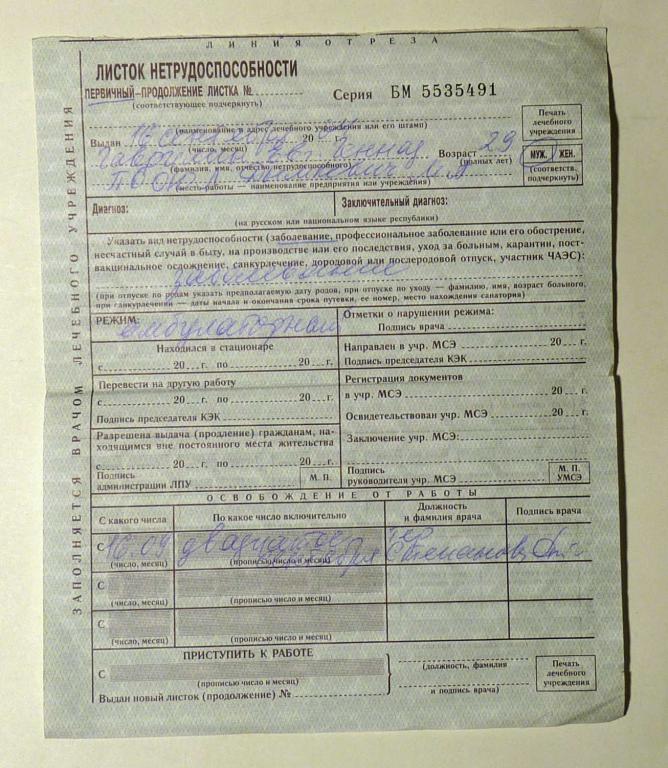 ЛИНИЯ ОТРЕЗА
ЗАПОЛНЯЕТСЯ ВРАЧОМ ЛЕЧЕБНОГО УЧРЕЖДЕНИЯ
ЛИСТОК НЕТРУДОСПОСОБНОСТИ
ПЕРВИЧНЫЙ–ПРОДОЛЖЕНИЕ ЛИСТКА №
(соответствующее подчеркнуть)
Серия БМ 5535491
(наименование и адрес лечебного учреждения или его штамп)
Печать лечебного учреждения
Выдан 20
(число, месяц)
Возраст 29
(фамилия, имя, отчество нетрудоспособного)
(полных лет)
МУЖ. ЖЕН.
(соответств. подчеркнуть)
(место работы — наименование предприятия или учреждения)
Диагноз:
Заключительный диагноз:
(на русском или национальном языке республики)
Указать вид нетрудоспособности (заболевание, профессиональное заболевание или его обострение,
несчастный случай в быту, на производстве или его последствия, уход за больным, карантин, пост-
вакцинальное осложнение, санкурлечение, дородовой или послеродовой отпуск, участник ЧАЭС):
заболевание
(при отпуске по родам указать предполагаемую дату родов, при отпуске по уходу — фамилию, имя, возраст больного,
при санкурлечении — даты начала и окончания срока путевки, ее номер, место нахождения санатория)
РЕЖИМ: амбулаторный
Отметки о нарушении режима:
Подпись врача
Находился в стационаре
Направлен в учр. МСЭ 20 г.
с 20 г. по 20 г.
Подпись председателя КЭК
Перевести на другую работу
Регистрация документов
в учр. МСЭ 20 г.
с 20 г. по 20 г.
Освидетельствован учр. МСЭ 20 г.
Подпись председателя КЭК
Разрешена выдача (продление) гражданам, на-
ходящимся вне постоянного места жительства
Заключение учр. МСЭ:
с 20 г. по 20 г.
Подпись администрации ЛПУ
М. П.
Подпись руководителя учр. МСЭ
М. П. УМСЭ
ОСВОБОЖДЕНИЕ ОТ РАБОТЫ
С какого числа
По какое число включительно
Должность и фамилия врача
Подпись врача
С 16.09 двадцатое сентября тер Степанова
(число, месяц)
(прописью число и месяц)
С
(число, месяц)
(прописью число и месяц)
С
(число, месяц)
(прописью число и месяц)
ПРИСТУПИТЬ К РАБОТЕ
С
(прописью число и месяц)
(должность, фамилия
и подпись врача)
Печать лечебного учреждения
Выдан новый листок (продолжение) №